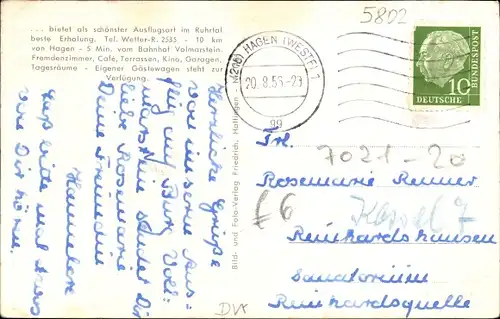 ... bietet als schönster Ausflugsort im Ruhrtal
beste Erholung. Tel. Wetter-R. 2535 - 10 km
von Hagen - 5 Min. vom Bahnhof Volmarstein.
Fremdenzimmer, Café, Terrassen, Kino, Garagen,
Tagesräume - Eigener Gästewagen steht zur
Verfügung.
Herzliche Grüße
von unserem Aus-
flug auf Burg Voll-
marstein sendet Dir
liebe Rosemarie
Deine Freundin
Hannelore
Laß bitte mal etwas
von Dir hören.
Bild- und Foto-Verlag Friedrich, Hattingen
5802
(22a) HAGEN (WESTF) 1
20.8.55-23
gg
DEUTSCHE
BUNDESPOST
10
Frl.
7021-20
Rosemarie Renner
£6
Kassel 7
Reinhardshausen
Sanatorium
Reinhardsquelle
DVK